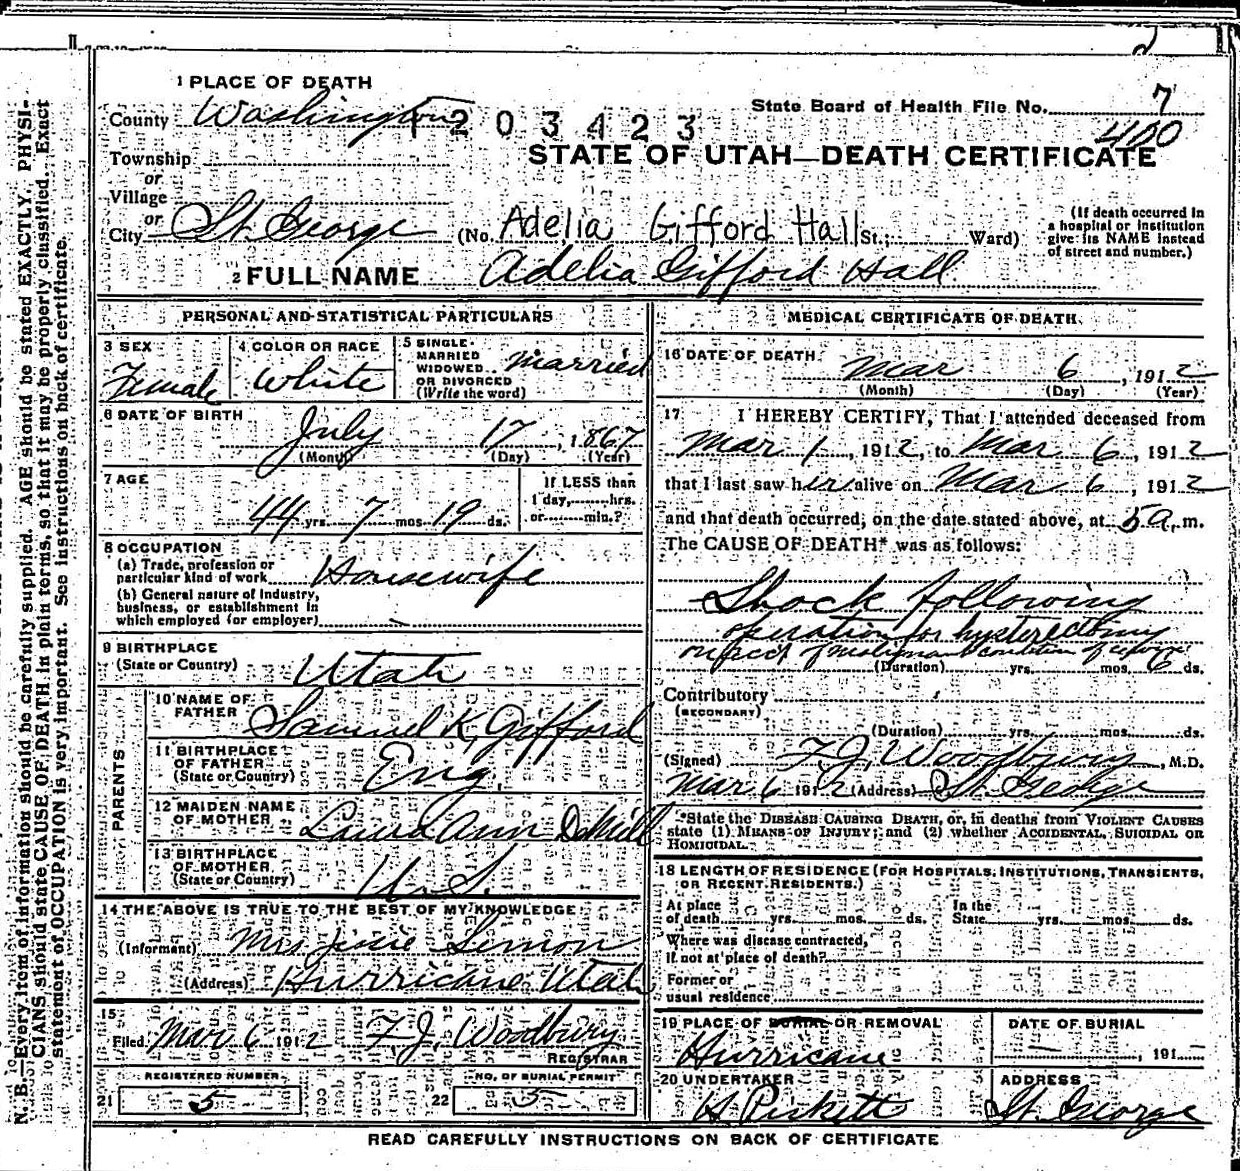 1 PLACE OF DEATH
County Washington
1203423
State Board of Health File No. 7
400
STATE OF UTAH—DEATH CERTIFICATE
Township
or
Village
or
City St. George (No. Adelia Gifford Hall St.; Ward)
(If death occurred in a hospital or institution give its NAME instead of street and number.)
2 FULL NAME Adelia Gifford Hall
PERSONAL AND STATISTICAL PARTICULARS
3 SEX
Female
4 COLOR OR RACE
White
5 SINGLE
MARRIED
WIDOWED
OR DIVORCED
(Write the word)
Married
6 DATE OF BIRTH
July 17, 1867
(Month) (Day) (Year)
7 AGE
44 yrs. 7 mos. 19 ds.
If LESS than
1 day, hrs.
or min.?
8 OCCUPATION
(a) Trade, profession or
particular kind of work Housewife
(b) General nature of industry,
business, or establishment in
which employed (or employer) –
9 BIRTHPLACE
(State or Country) Utah
PARENTS
10 NAME OF
FATHER Samuel K. Gifford
11 BIRTHPLACE
OF FATHER
(State or Country) Eng.
12 MAIDEN NAME
OF MOTHER Laura Ann DeMill
13 BIRTHPLACE
OF MOTHER
(State or Country) U.S.
14 THE ABOVE IS TRUE TO THE BEST OF MY KNOWLEDGE
(Informant) Mrs
(Address) Hurricane Utah
15
Filed Mar 6 1912 F. J. Woodbury
REGISTRAR
REGISTERED NUMBER
21 5
NO. OF BURIAL PERMIT
22 5
MEDICAL CERTIFICATE OF DEATH
16 DATE OF DEATH
Mar 6, 1912
(Month) (Day) (Year)
17 I HEREBY CERTIFY, That I attended deceased from
Mar 1, 1912, to Mar 6, 1912
that I last saw her alive on Mar 6, 1912
and that death occurred, on the date stated above, at 5 a. m.
The CAUSE OF DEATH* was as follows:
Shock following
operation for hysterectomy
malignant condition of
(Duration) yrs. mos. 6 ds.
Contributory
(SECONDARY)
(Duration) yrs. mos. ds.
(Signed) F. J. Woodbury, M.D.
Mar 6 1912 (Address) St. George
*State the DISEASE CAUSING DEATH, or, in deaths from VIOLENT CAUSES
state (1) MEANS OF INJURY; and (2) whether ACCIDENTAL, SUICIDAL OR
HOMICIDAL.
18 LENGTH OF RESIDENCE (FOR HOSPITALS, INSTITUTIONS, TRANSIENTS,
OR RECENT RESIDENTS.)
At place
of death yrs. mos. ds.
In the
State yrs. mos. ds.
Where was disease contracted,
if not at place of death?
Former or
usual residence
19 PLACE OF BURIAL OR REMOVAL
Hurricane
DATE OF BURIAL
–, 191–
20 UNDERTAKER
A Pickett
ADDRESS
St. George
READ CAREFULLY INSTRUCTIONS ON BACK OF CERTIFICATE
N. B.—Every item of information should be carefully supplied. AGE should be stated EXACTLY. PHYSI-
CIANS should state CAUSE OF DEATH in plain terms, so that it may be properly classified. Exact
statement of OCCUPATION is very important. See instructions on back of certificate.